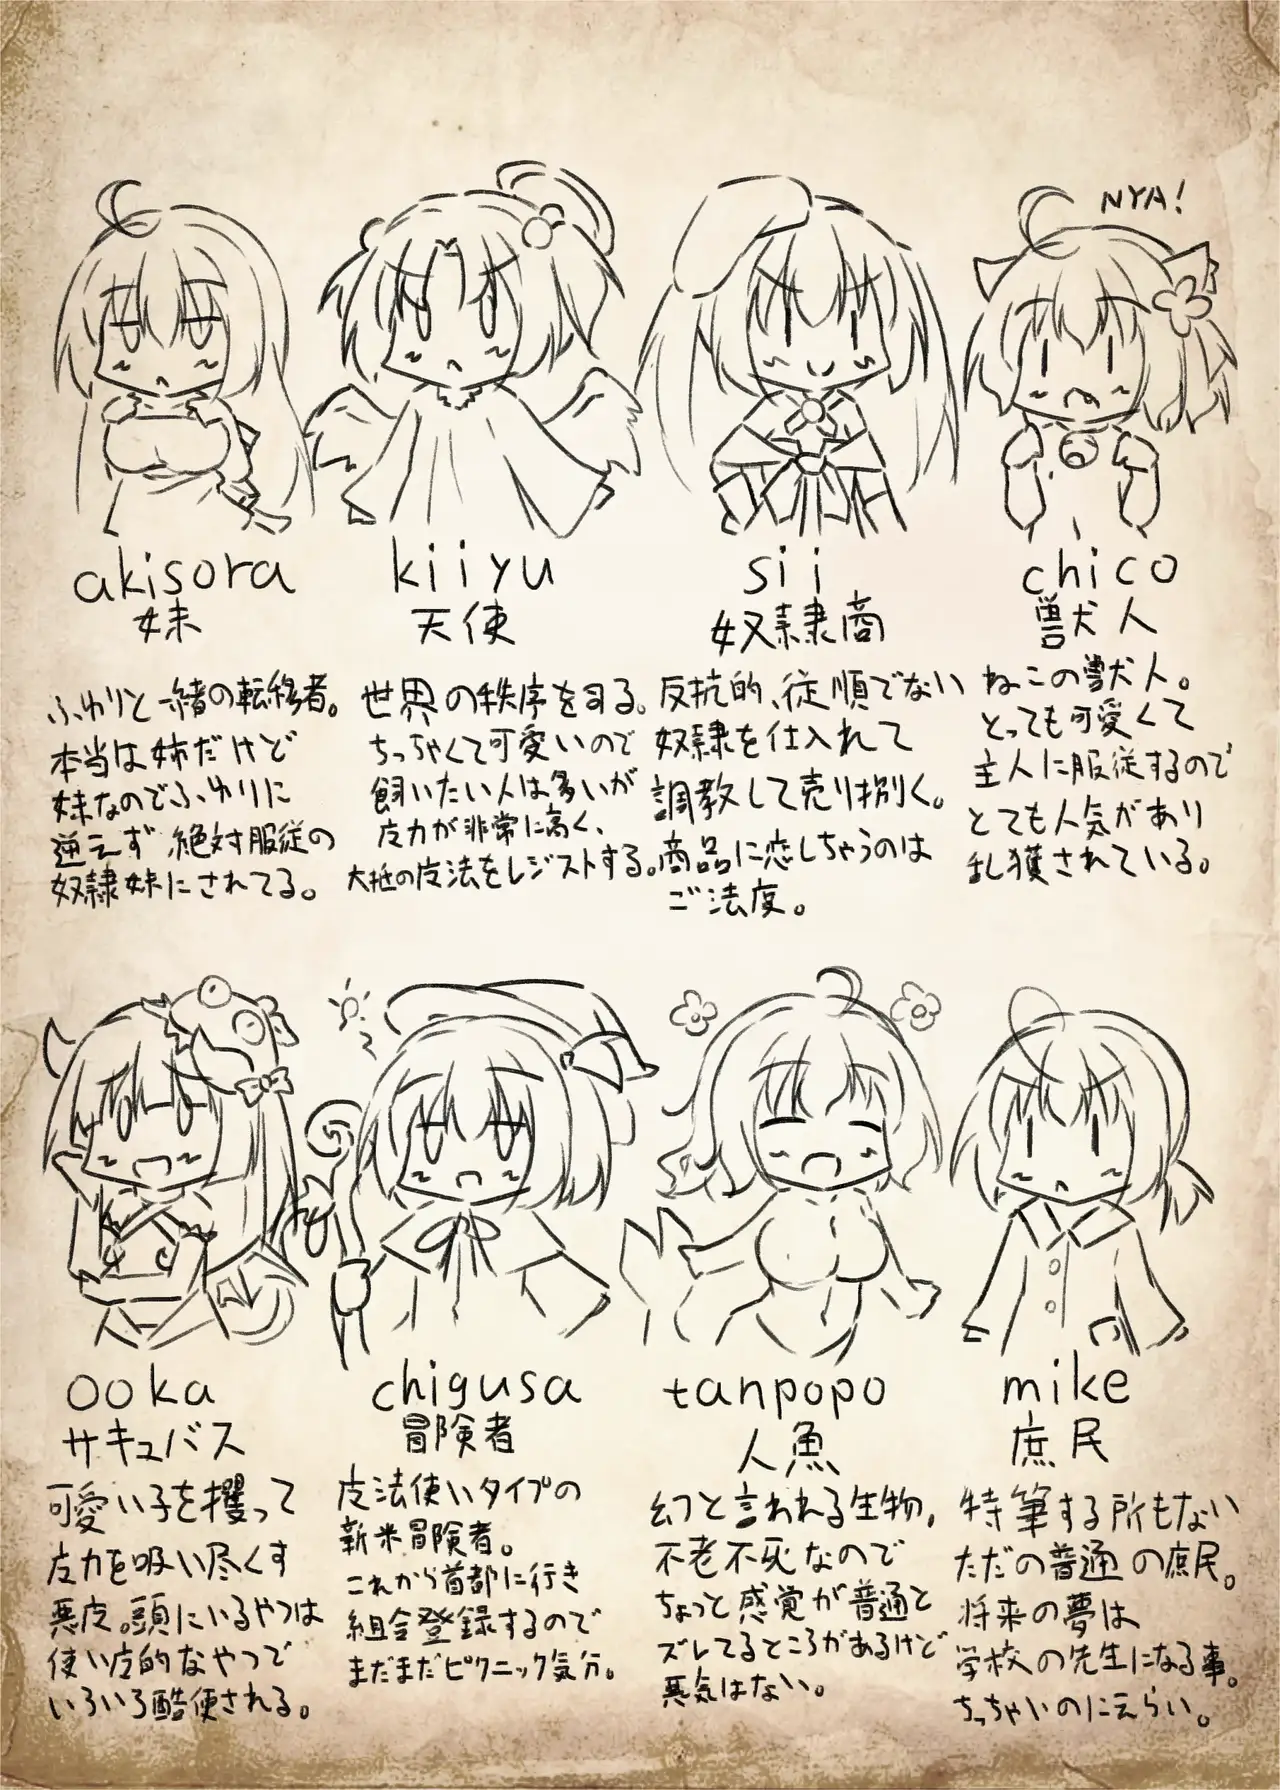 NYA!
akisora
妹
ふゆりと一緒の転移者。
本当は姉だけど
妹なのでふゆりに
逆らえず絶対服従の
奴隷妹にされてる。
kiiyu
天使
世界の秩序を司る。
ちっちゃくて可愛いので
飼いたい人は多いが
广力が非常に高く、
大抵の广法をレジストする。
sii
奴隷商
反抗的、従順でない
奴隷を仕入れて
調教して売り捌く。
商品に恋しちゃうのは
ご法度。
chico
獣人
ねこの獣人。
とっても可愛くて
主人に服従するので
とても人気があり
乱獲されている。
ooka
サキュバス
可愛い子を攫って
广力を吸い尽くす
悪广。頭にいるやつは
使い广的なやつで
いろいろ酷使される。
chigusa
冒険者
广法使いタイプの
新米冒険者。
これから首都に行き
組合登録するので
まだまだピクニック気分。
tanpopo
人魚
幻と言われる生物。
不老不死なので
ちょっと感覚が普通と
ズレてるところがあるけど
悪気はない。
mike
庶民
特筆する所もない
ただの普通の庶民。
将来の夢は
学校の先生になる事。
ちっちゃいのにえらい。